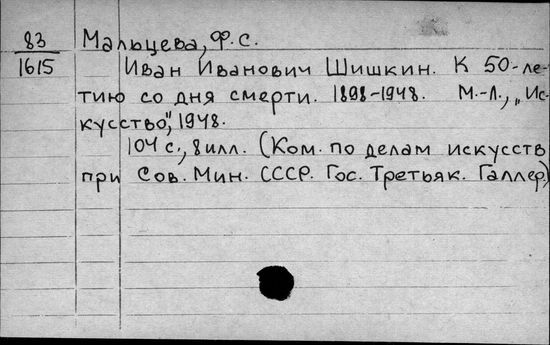 83 Мальцева, Ф. С.
1615 Иван Иванович Шишкин. К 50-ле-
тию со дня смерти. 1898-1948. М.-Л., „Ис-
кусство", 1948.
104 с., 8 илл. (Ком. по делам искусств
при Сов. Мин. СССР. Гос. Третьяк. Галлер.)